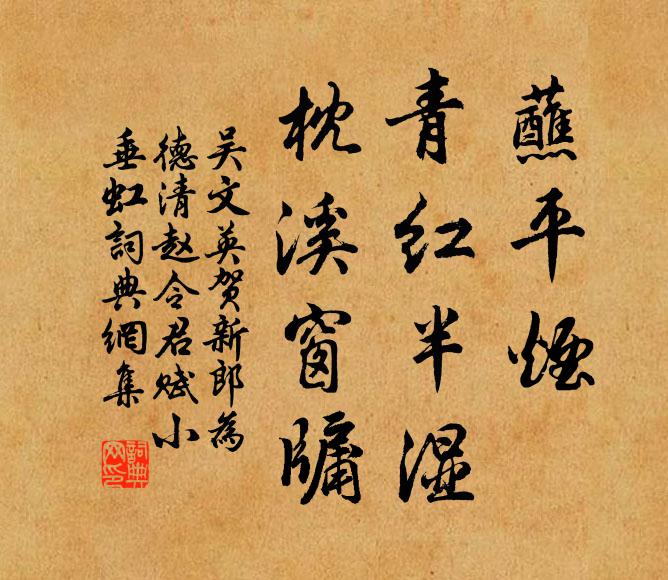 蘸平煙
青红半湿
枕溪窗牖
吴文英贺新郎為
德清赵令君赋小
垂虹詞典網集
詞典
网印